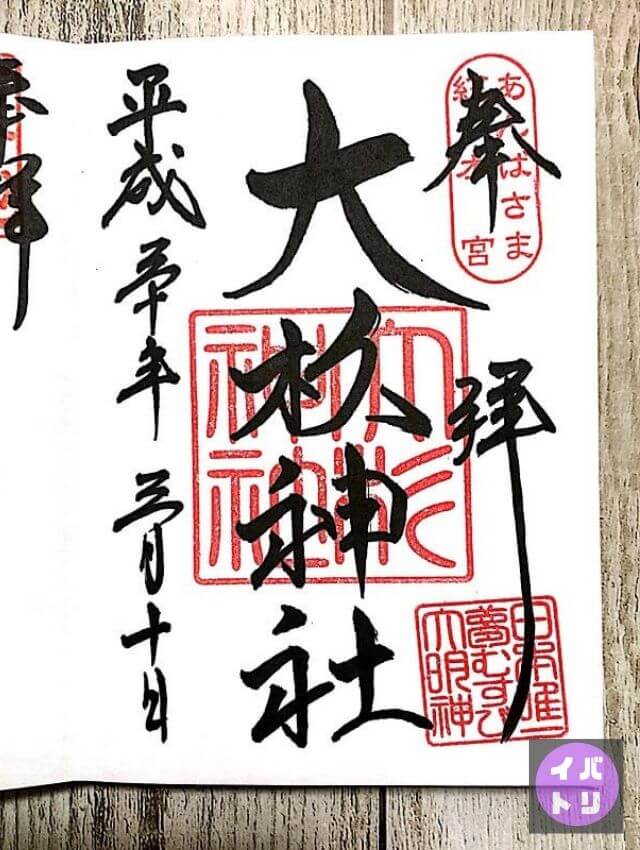 奉拝
あんばさま
紅 宮
大杉神社
大杉
神社
日本唯一
夢むすび
大明神
平成三十年 三月十日
奉拝
イバ
トリ